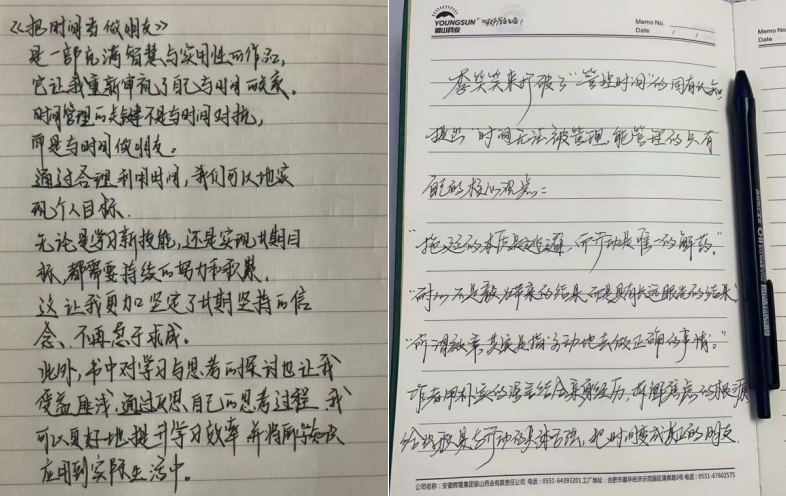 《把时间当做朋友》
是一部充满智慧与实用性的作品,
它让我重新审视了自己与时间的关系.
时间管理的关键不是与时间对抗,
而是与时间做朋友。
通过合理利用时间,我们可以地实
现个人目标.
无论是学习新技能,还是实现长期目
标,都需要持续的努力和积累.
这让我更加坚定了长期坚持的信
念、不再急于求成。
此外,书中对学习与思考的探讨也让我
受益匪浅.通过反思自己的思考过程,我
可以更好地提升学习效率并将所学知识
应用到实际生活中.
YOUNGSUN®
辉山药业
Memo No.
Date / /
李笑来打破了"管理时间"的固有认知,
提出"时间无法被管理,能管理的只有
自己的核心观点:
"拖延的本质是逃避,而行动是唯一的解药."
"耐心不是毅力带来的结果,而是具有长远眼光的结果"
"所谓效率,其实是指主动地去做正确的事情."
作者用朴实的语言结合亲身经历,拆解焦虑的根源
给我极具可行动的具体方法,把时间变成真正的朋友.
公司名称:安徽辉隆集团辉山药业有限责任公司 电话:0551-64393201 工厂地址:合肥市循环经济示范园区清泉路9号 电话:0551-67602575
Memo No
Date